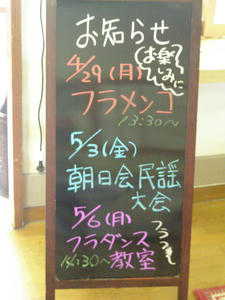 お知らせ
お楽しみに
4/29(月)
フラメンコ
13:30〜
5/3(金)
朝日会民謡
大会
5/6(月)
フラダンス
14:30〜教室